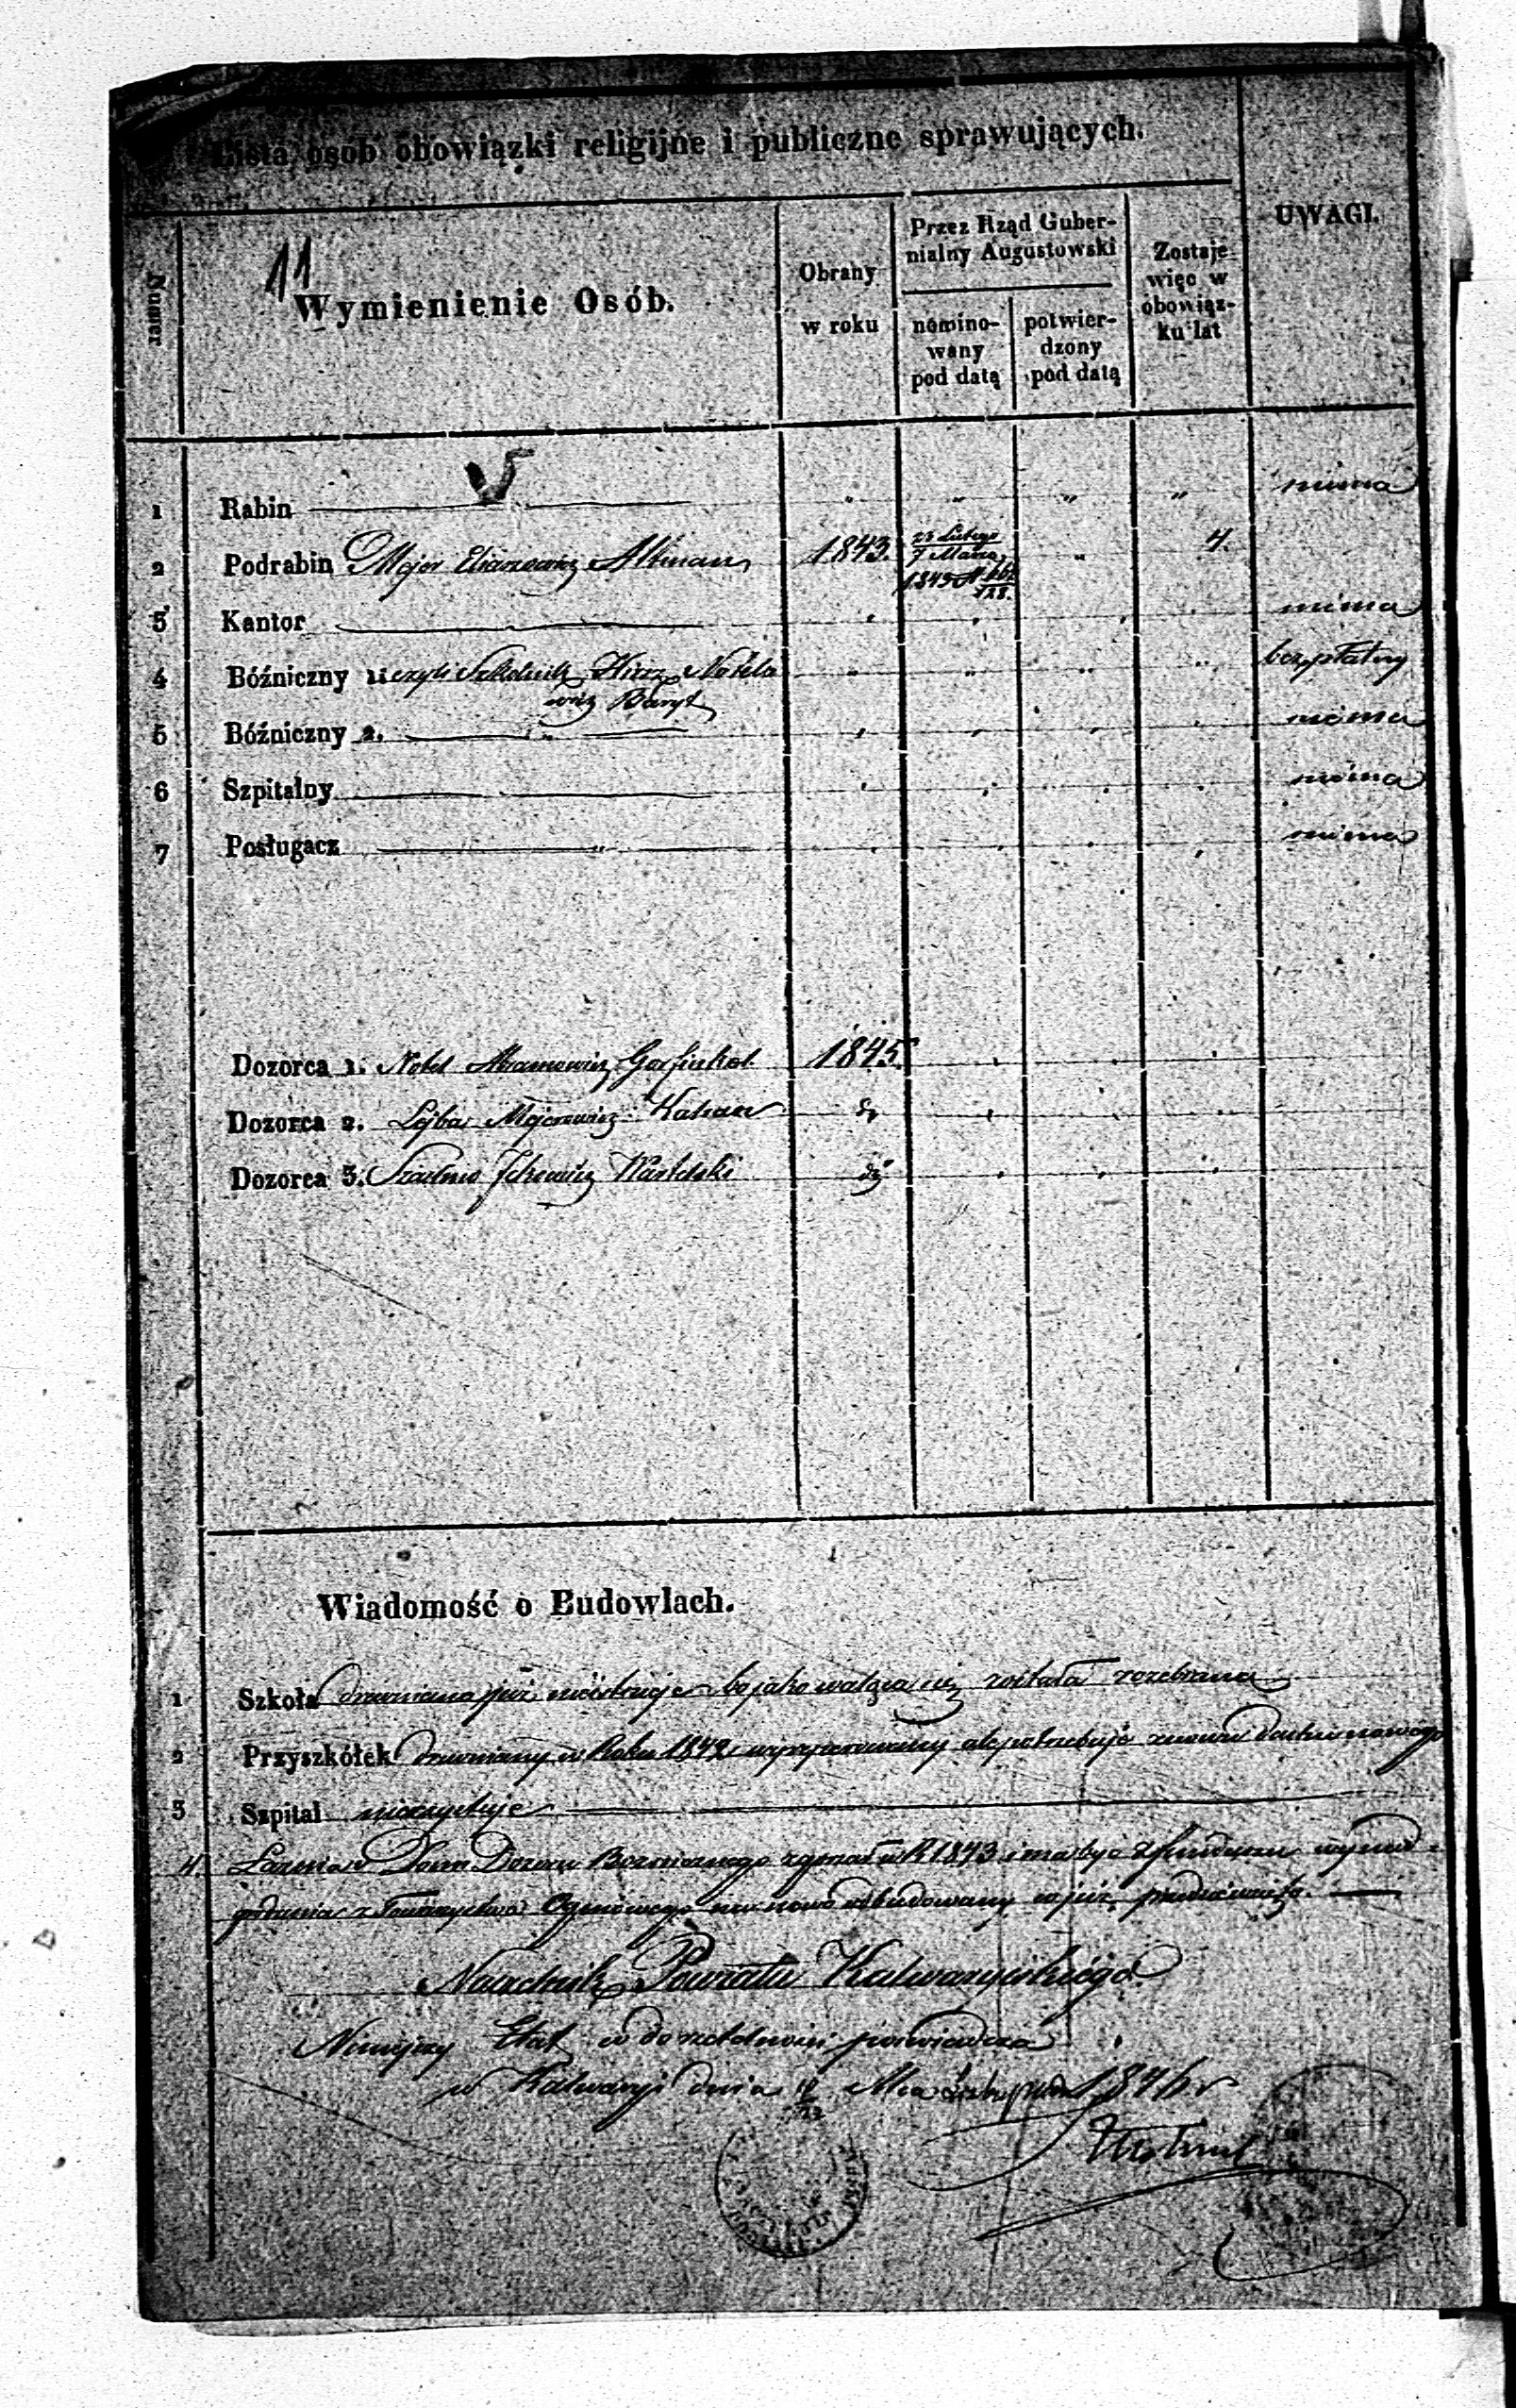 Lista osob obowiązki religijne i publiczne sprawujących.
Numer
11
Wymienienie Osób.
Obrany
w roku
Przez Rząd Guber-
nialny Augustowski
nomino-
wany
pod datą
potwier-
dzony
pod datą
Zostaje
więc w
obowiąz-
ku lat
UWAGI.
5
1 Rabin " " " " niema
2 Podrabin Mejer Eliaszowicz Altman 1843. 23 Lutego " 4.
7 Marca
1843 N
128.
3 Kantor niema
4 Bóźniczny 1. czyli Szkolnik Hirsz Notelo " " " " bezpłatny
wicz Baryt
5 Bóźniczny 2. niema
6 Szpitalny niema
7 Posługacz " niema
Dozorca 1. Notel Abramowicz Garfinkel 1845.
Dozorca 2. Lejba Mejerowicz Kahan
Dozorca 3. Ickowicz
Wiadomość o Budowlach.
1 Szkoła drewniana już nieistnieje bo jako waląca się została rozebrana
2 Przyszkółek drewniany w Roku 1842 wyreperowany ale potrzebuje znowu dachu nowego
3 Szpital nieexystuje
4 Łaznia i Dom Dozoru Bozniczego zgorzał w R 1843 i ma być z funduszu wynad-
grodzenia z Towarzystwa Ogniowego na nowo odbudowany co już
Naczelnik Powiatu Kalwaryjskiego
Niniejszy Etat co do rzetelności poświadcza
w Kalwaryi dnia Mca 1846 r